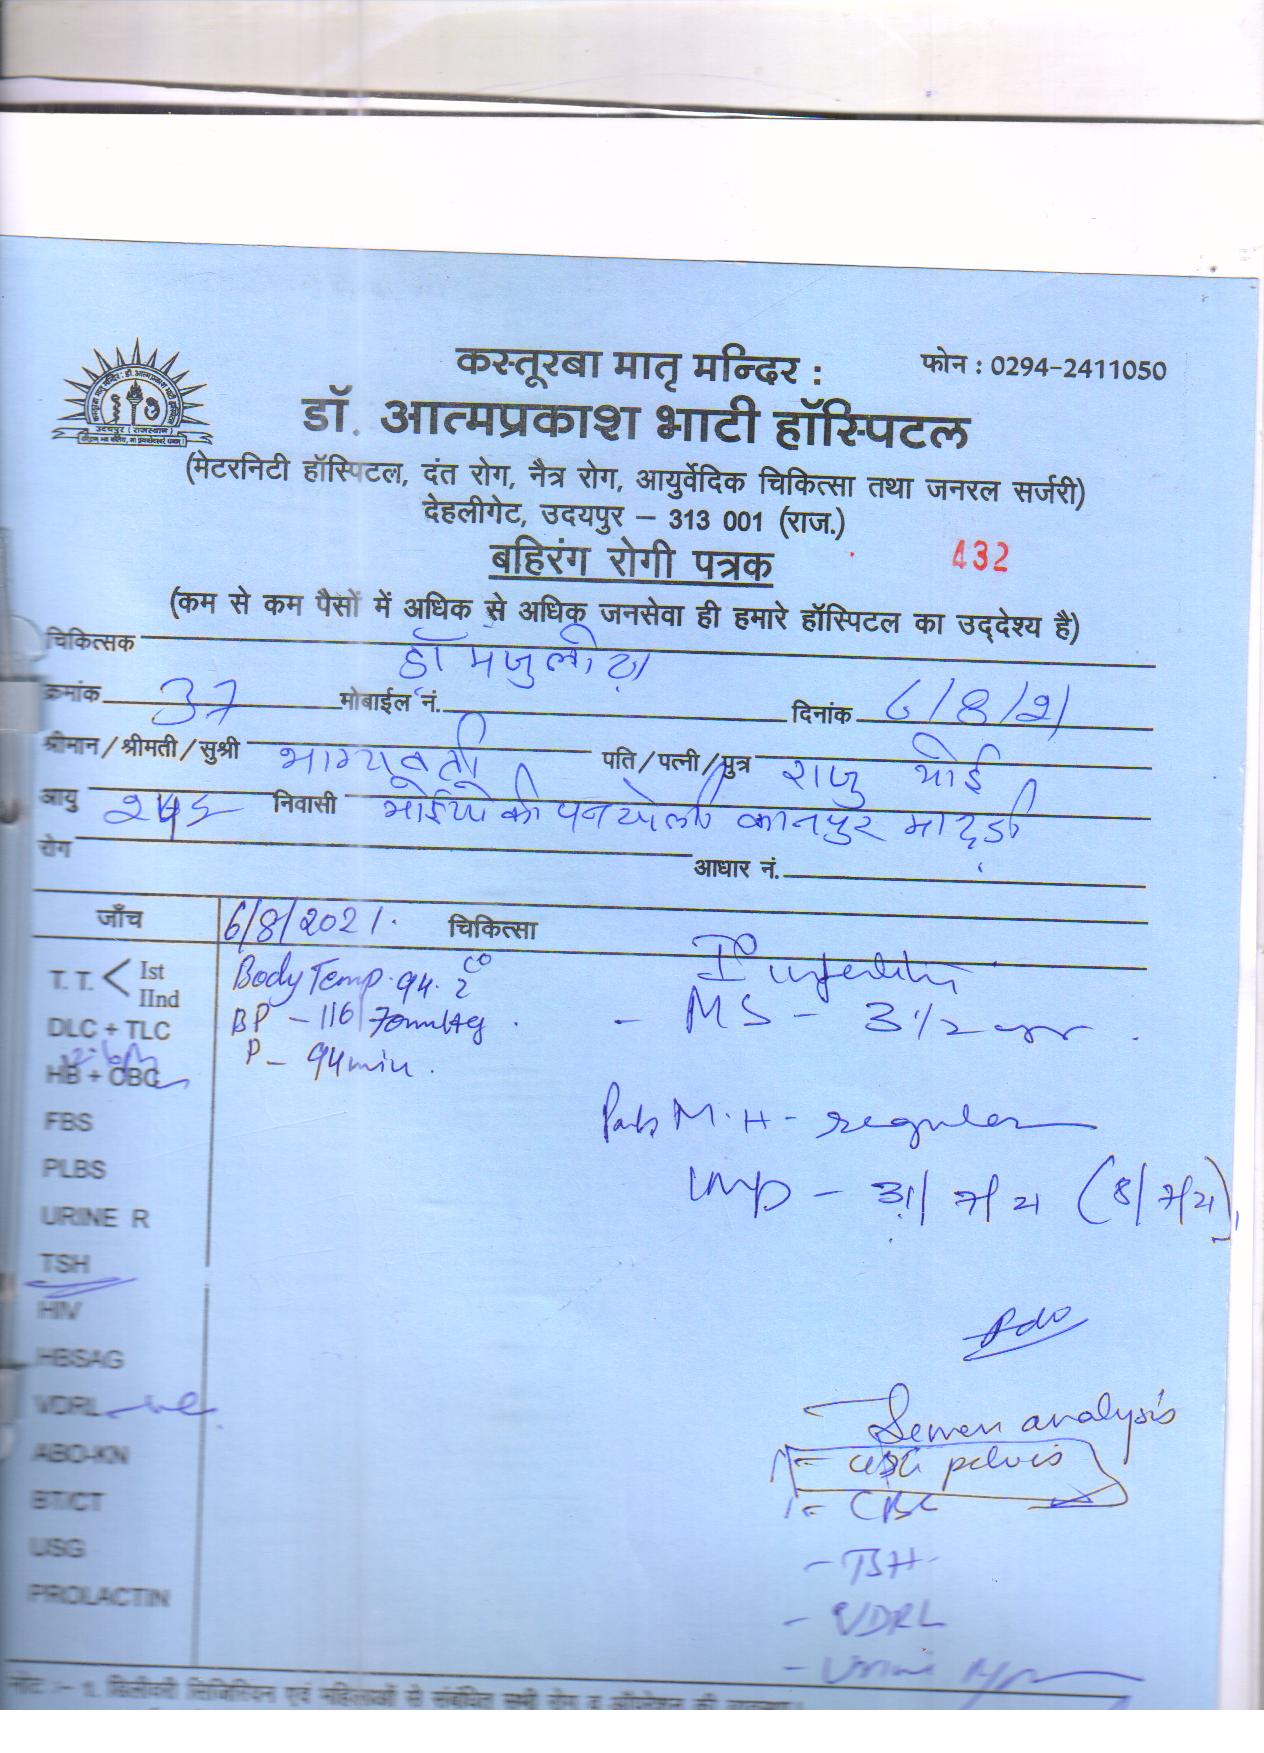 कस्तूरबा मातृ मन्दिर :
फोन : 0294-2411050
डॉ. आत्मप्रकाश भाटी हॉस्पिटल
(मेटरनिटी हॉस्पिटल, दंत रोग, नैत्र रोग, आयुर्वेदिक चिकित्सा तथा जनरल सर्जरी)
देहलीगेट, उदयपुर – 313 001 (राज.)
बहिरंग रोगी पत्रक
432
(कम से कम पैसों में अधिक से अधिक जनसेवा ही हमारे हॉस्पिटल का उद्‌देश्य है)
चिकित्सक डॉ
क्रमांक 37 मोबाईल नं. दिनांक 6/8/21
श्रीमान/श्रीमती/सुश्री भाग्यवती पति/पत्नी/पुत्र राजु भोई
आयु निवासी भोईयो की कानपुर
रोग आधार नं.
जाँच 6/8/2021. चिकित्सा
T. T. < Ist
IInd
Body Temp. 94.2
BP – 116/70mmHg
P – 94 min.
I° infertility
- MS – 3 1/2 yr
DLC + TLC
HB + CBC
M.H – regular
FBS
PLBS
LMP – (8/7/21)
URINE R
TSH
HIV
Adv
HBSAG
VDRL -ve
Semen analysis
ABO-KN
USG pelvis
BT/CT
CBC
USG
- TSH
PROLACTIN
- VDRL
- Urine
नोट :- 1. डिलीवरी सिजिरियन एवं महिलाओं से संबंधित सभी रोग व ऑपरेशन की व्यवस्था।